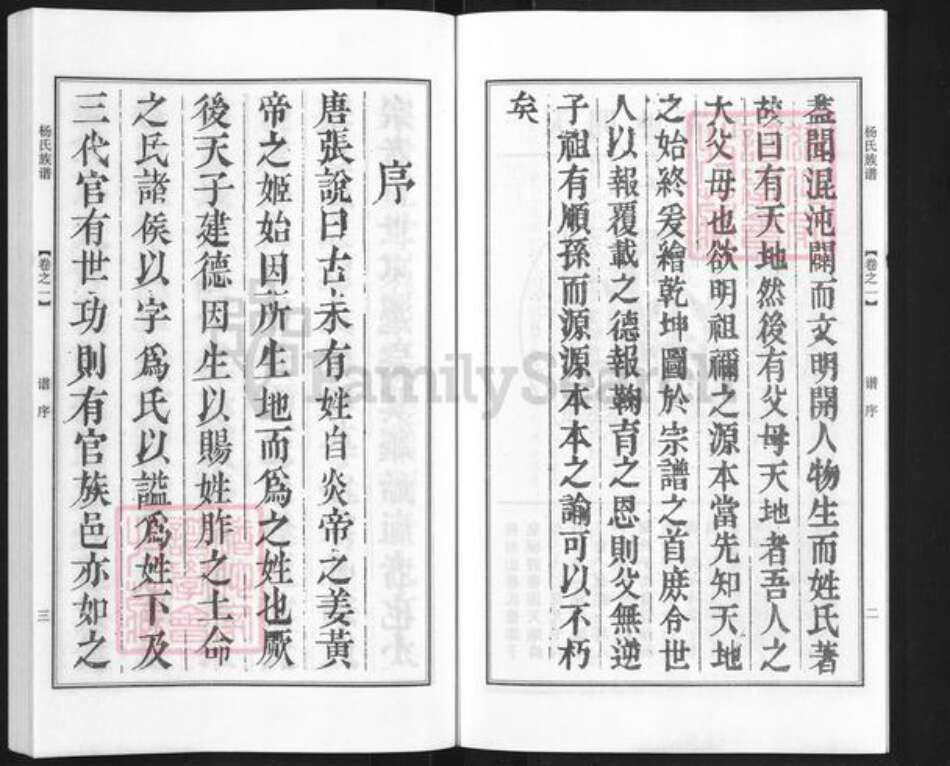 杨氏族谱
【卷之一】
谱序
二
蓋聞混沌闢而文明開人物生而姓氏著
故曰有天地然後有父母天地者吾人之
大父母也欲明祖禰之源本當先知天地
之始終爰繪乾坤圖於宗譜之首庶令世
人以報覆載之德報鞠育之恩則父無逆
子祖有順孫而源源本本之諭可以不朽
矣
序
唐張說曰古未有姓自炎帝之姜黃
帝之姬始因所生地而爲之姓也厥
後天子建德因生以賜姓胙之土命
之氏諸侯以字爲氏以謚爲姓下及
三代官有世功則有官族邑亦如之
杨氏族谱
【卷之一】
谱序
三
FamilySearch